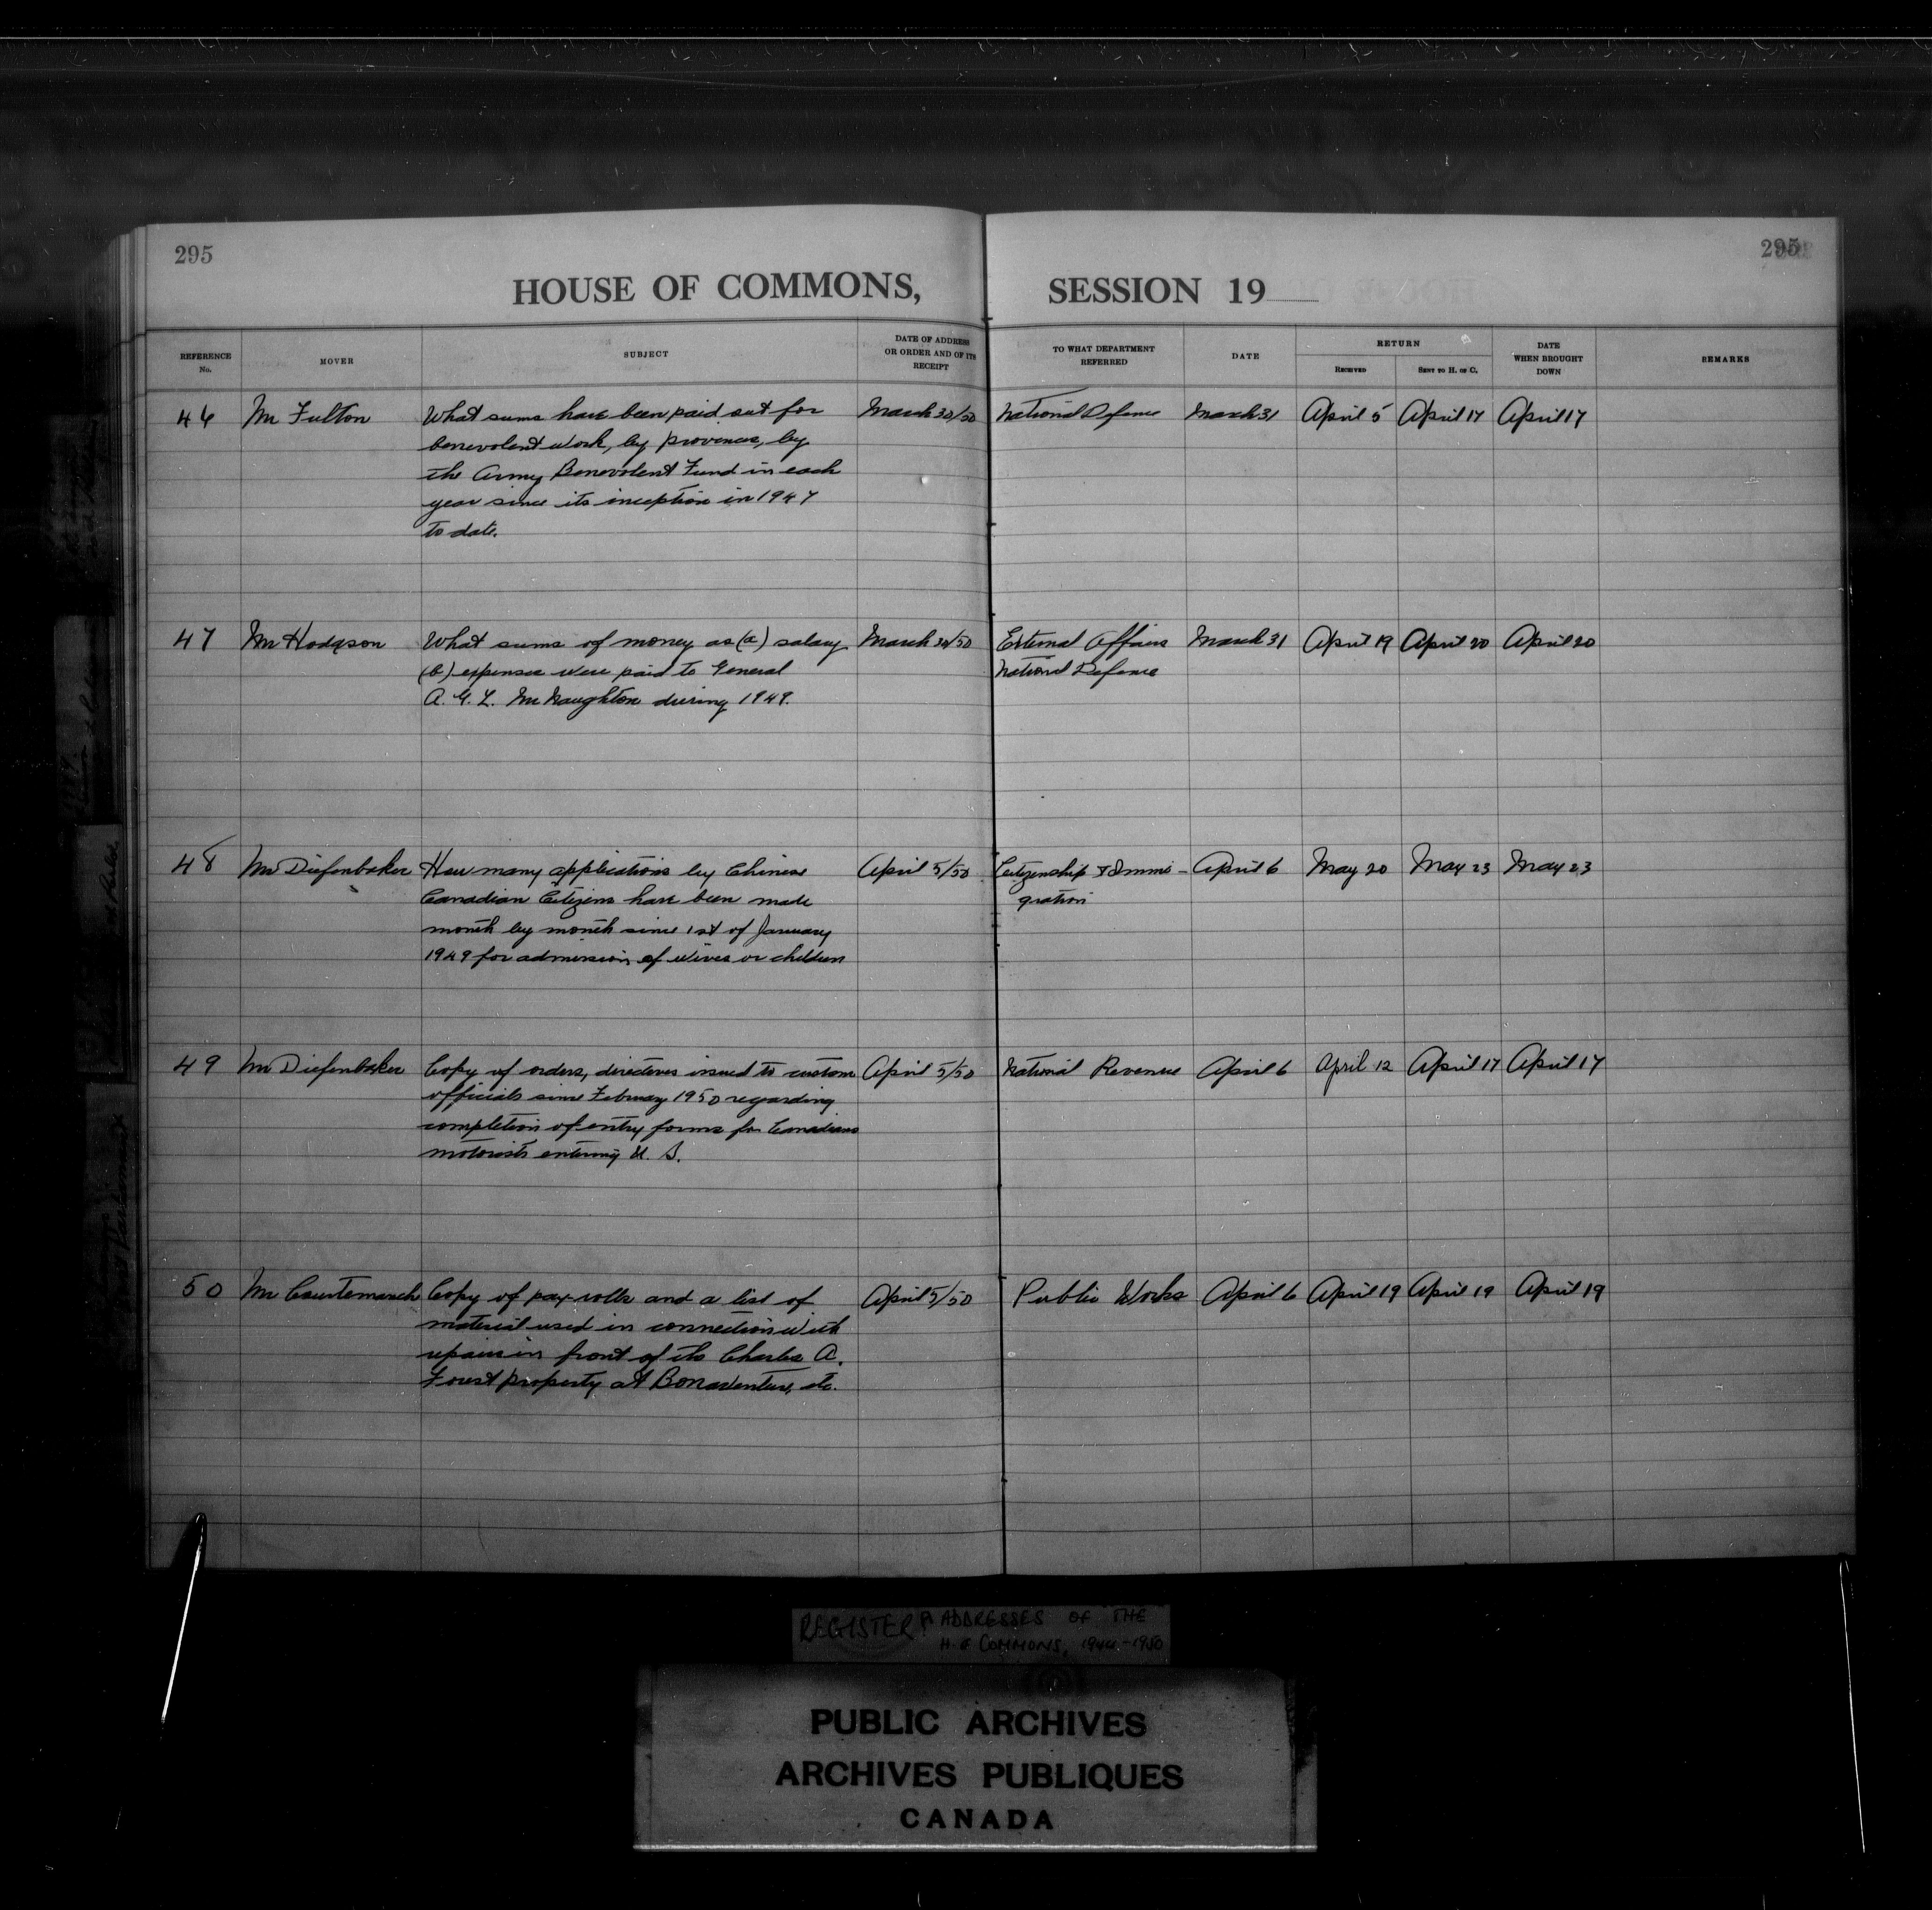 295
295
HOUSE OF COMMONS, SESSION 19
REFERENCE No.
MOVER
SUBJECT
DATE OF ADDRESS OR ORDER AND OF ITS RECEIPT
TO WHAT DEPARTMENT REFERRED
DATE
RETURN
RECEIVED
SENT TO H. OF C.
DATE WHEN BROUGHT DOWN
REMARKS
46 Mr Fulton What sums have been paid out for March 30/50 National Defence March 31 April 5 April 17 April 17
benevolent work, by provinces, by
the Army Benevolent Fund in each
year since its inception in 1947
to date.
47 Mr Hodgson What sums of money as (a) salary March 30/50 External Affairs March 31 April 19 April 20 April 20
(b) expenses were paid to General National Defence
A. G. L. McNaughton during 1949.
48 Mr Diefenbaker How many applications by Chinese April 5/50 Citizenship & Immi- April 6 May 20 May 23 May 23
Canadian Citizens have been made gration
month by month since 1st of January
1949 for admission of wives or children
49 Mr Diefenbaker Copy of orders, directives issued to custom April 5/50 National Revenue April 6 April 12 April 17 April 17
officials since February 1950 regarding
completion of entry forms for Canadians
motorists entering U. S.
50 Mr Courtemanche Copy of pay-rolls and a list of April 5/50 Public Works April 6 April 19 April 19 April 19
material used in connection with
repairs in front of the Charles A.
Forest property at Bonaventure, etc.
REGISTER ADDRESSES OF THE
H. of COMMONS, 1944-1950
PUBLIC ARCHIVES
ARCHIVES PUBLIQUES
CANADA